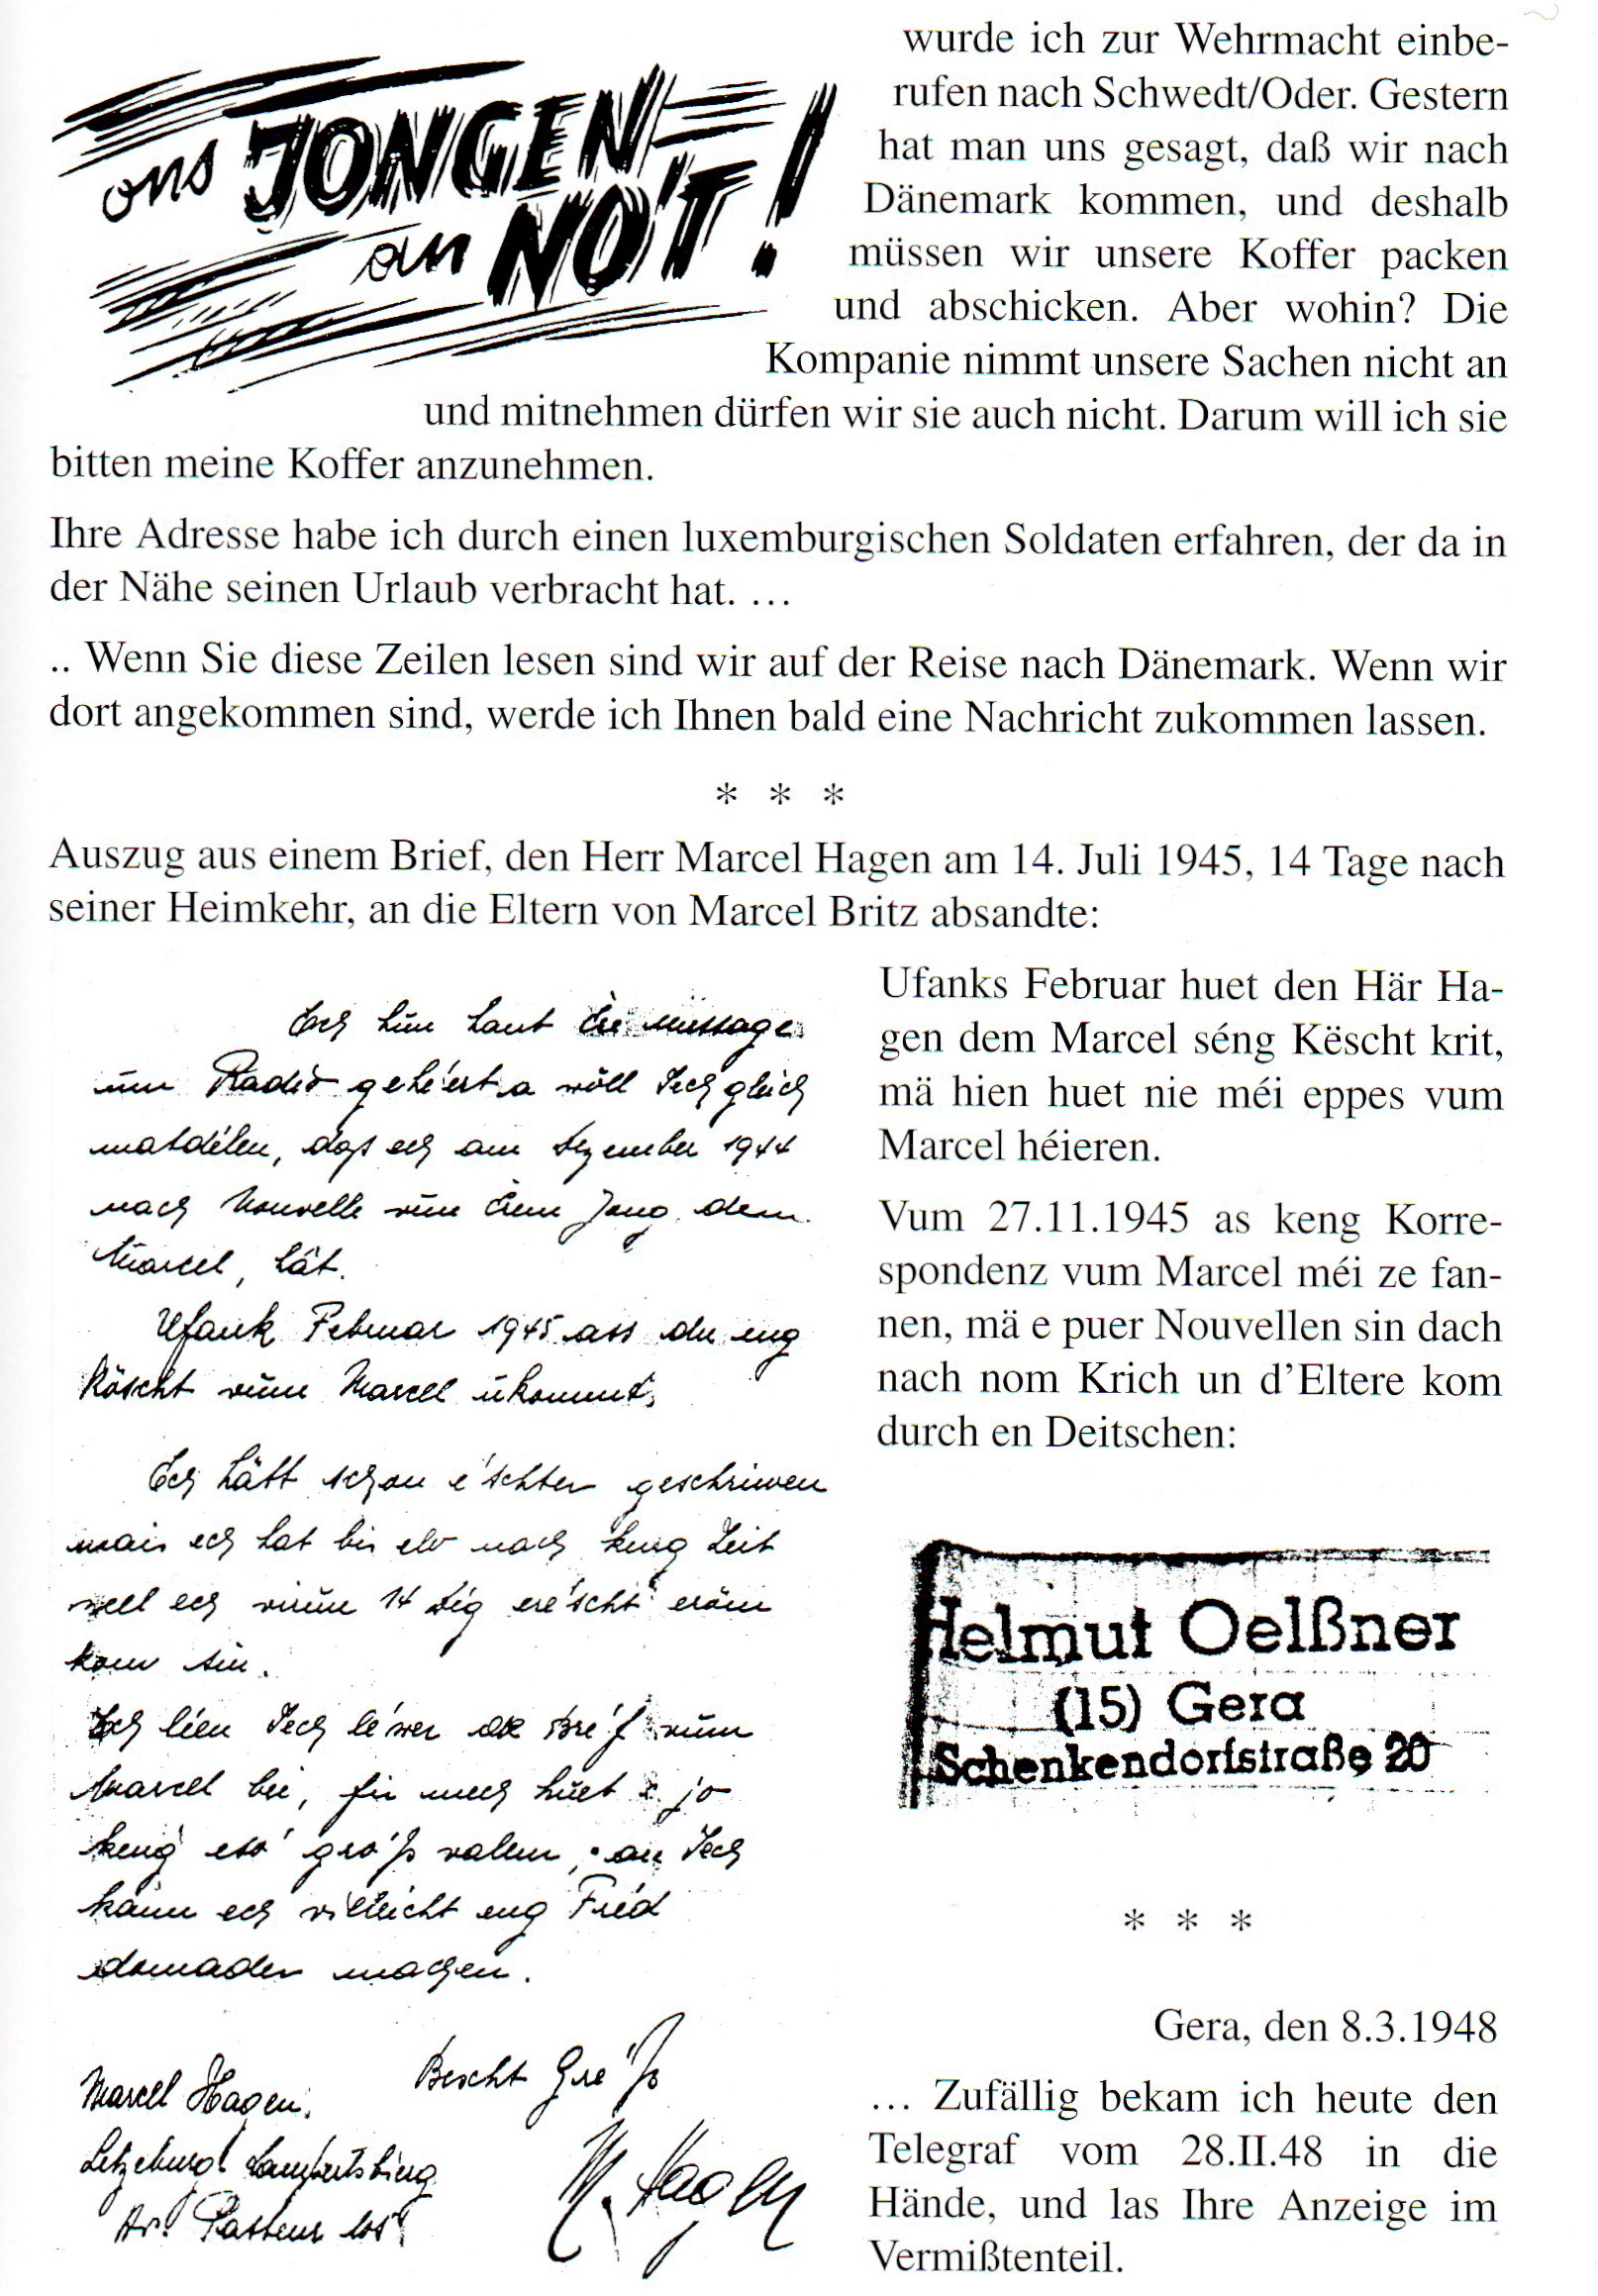 ons JONGEN
an NO'T!
wurde ich zur Wehrmacht einbe-
rufen nach Schwedt/Oder. Gestern
hat man uns gesagt, daß wir nach
Dänemark kommen, und deshalb
müssen wir unsere Koffer packen
und abschicken. Aber wohin? Die
Kompanie nimmt unsere Sachen nicht an
und mitnehmen dürfen wir sie auch nicht. Darum will ich sie
bitten meine Koffer anzunehmen.
Ihre Adresse habe ich durch einen luxemburgischen Soldaten erfahren, der da in
der Nähe seinen Urlaub verbracht hat. …
.. Wenn Sie diese Zeilen lesen sind wir auf der Reise nach Dänemark. Wenn wir
dort angekommen sind, werde ich Ihnen bald eine Nachricht zukommen lassen.
* * *
Auszug aus einem Brief, den Herr Marcel Hagen am 14. Juli 1945, 14 Tage nach
seiner Heimkehr, an die Eltern von Marcel Britz absandte:
Ech hun haut Äre message
um Radio gehéert a wöll Iech gleich
matdélen, dass ech am Dezember 1944
nach Nouvelle vum Ärem Jong, dem
Marcel, hât.
Ufank Februar 1945 ass du eng
Köscht vum Marcel ukomm.
Ech hätt schon é'schter geschriwen
mais ech hat bis elo nach keng Zeit
well ech virun 14 Dég eréischt erëm
kom sin.
Ech léen Iech léwer de Bréf vum
Marcel bei, fir mech huet e jo
keng eso' gro'ss valeur, an Iech
kann ech villeicht eng Fréd
domader machen.
Bescht Gré'ss
M. Hagen
Marcel Hagen.
Letzeburg! Lampertsbierg
Av. Pasteur 105
Ufanks Februar huet den Här Ha-
gen dem Marcel séng Këscht krit,
mä hien huet nie méi eppes vum
Marcel héieren.
Vum 27.11.1945 as keng Korre-
spondenz vum Marcel méi ze fan-
nen, mä e puer Nouvellen sin dach
nach nom Krich un d'Eltere kom
durch en Deitschen:
Helmut Oelßner
(15) Gera
Schenkendorfstraße 20
* * *
Gera, den 8.3.1948
… Zufällig bekam ich heute den
Telegraf vom 28.II.48 in die
Hände, und las Ihre Anzeige im
Vermißtenteil.